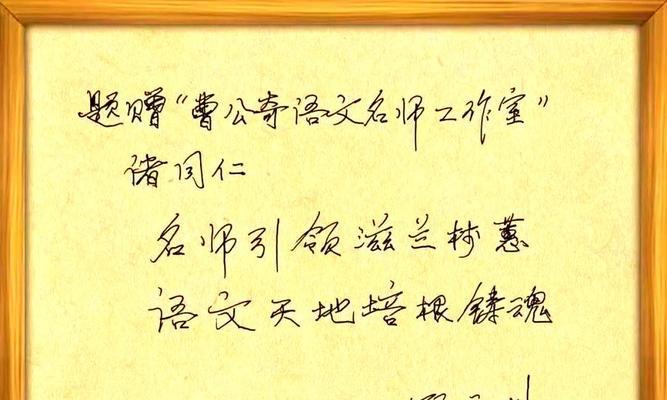 题赠“曹公奇语文名师工作室”
诸同仁
名师引领滋兰树蕙
语文天地培根铸魂